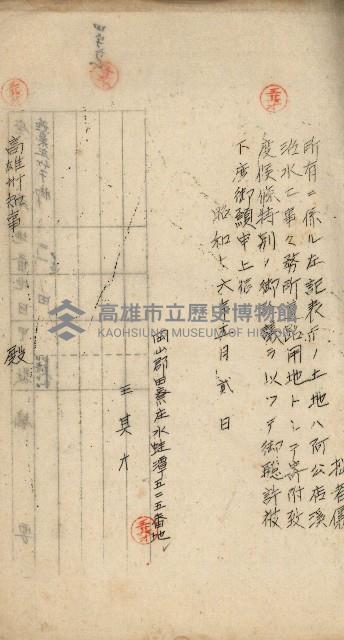 拙者儀
所有ニ係ル左記表示ノ土地ハ阿公店溪
治水工事々務所道路用地トシテ寄附致
度候條特別ノ御詮議ヲ以ッテ御聽許被
下度御願申上候
昭和十六年五月貳日
岡山郡田寮庄水蛙潭五二五番地
王其才
高雄州知事 殿
高雄市立歷史博物館
KAOHSIUNG MUSEUM OF HISTORY